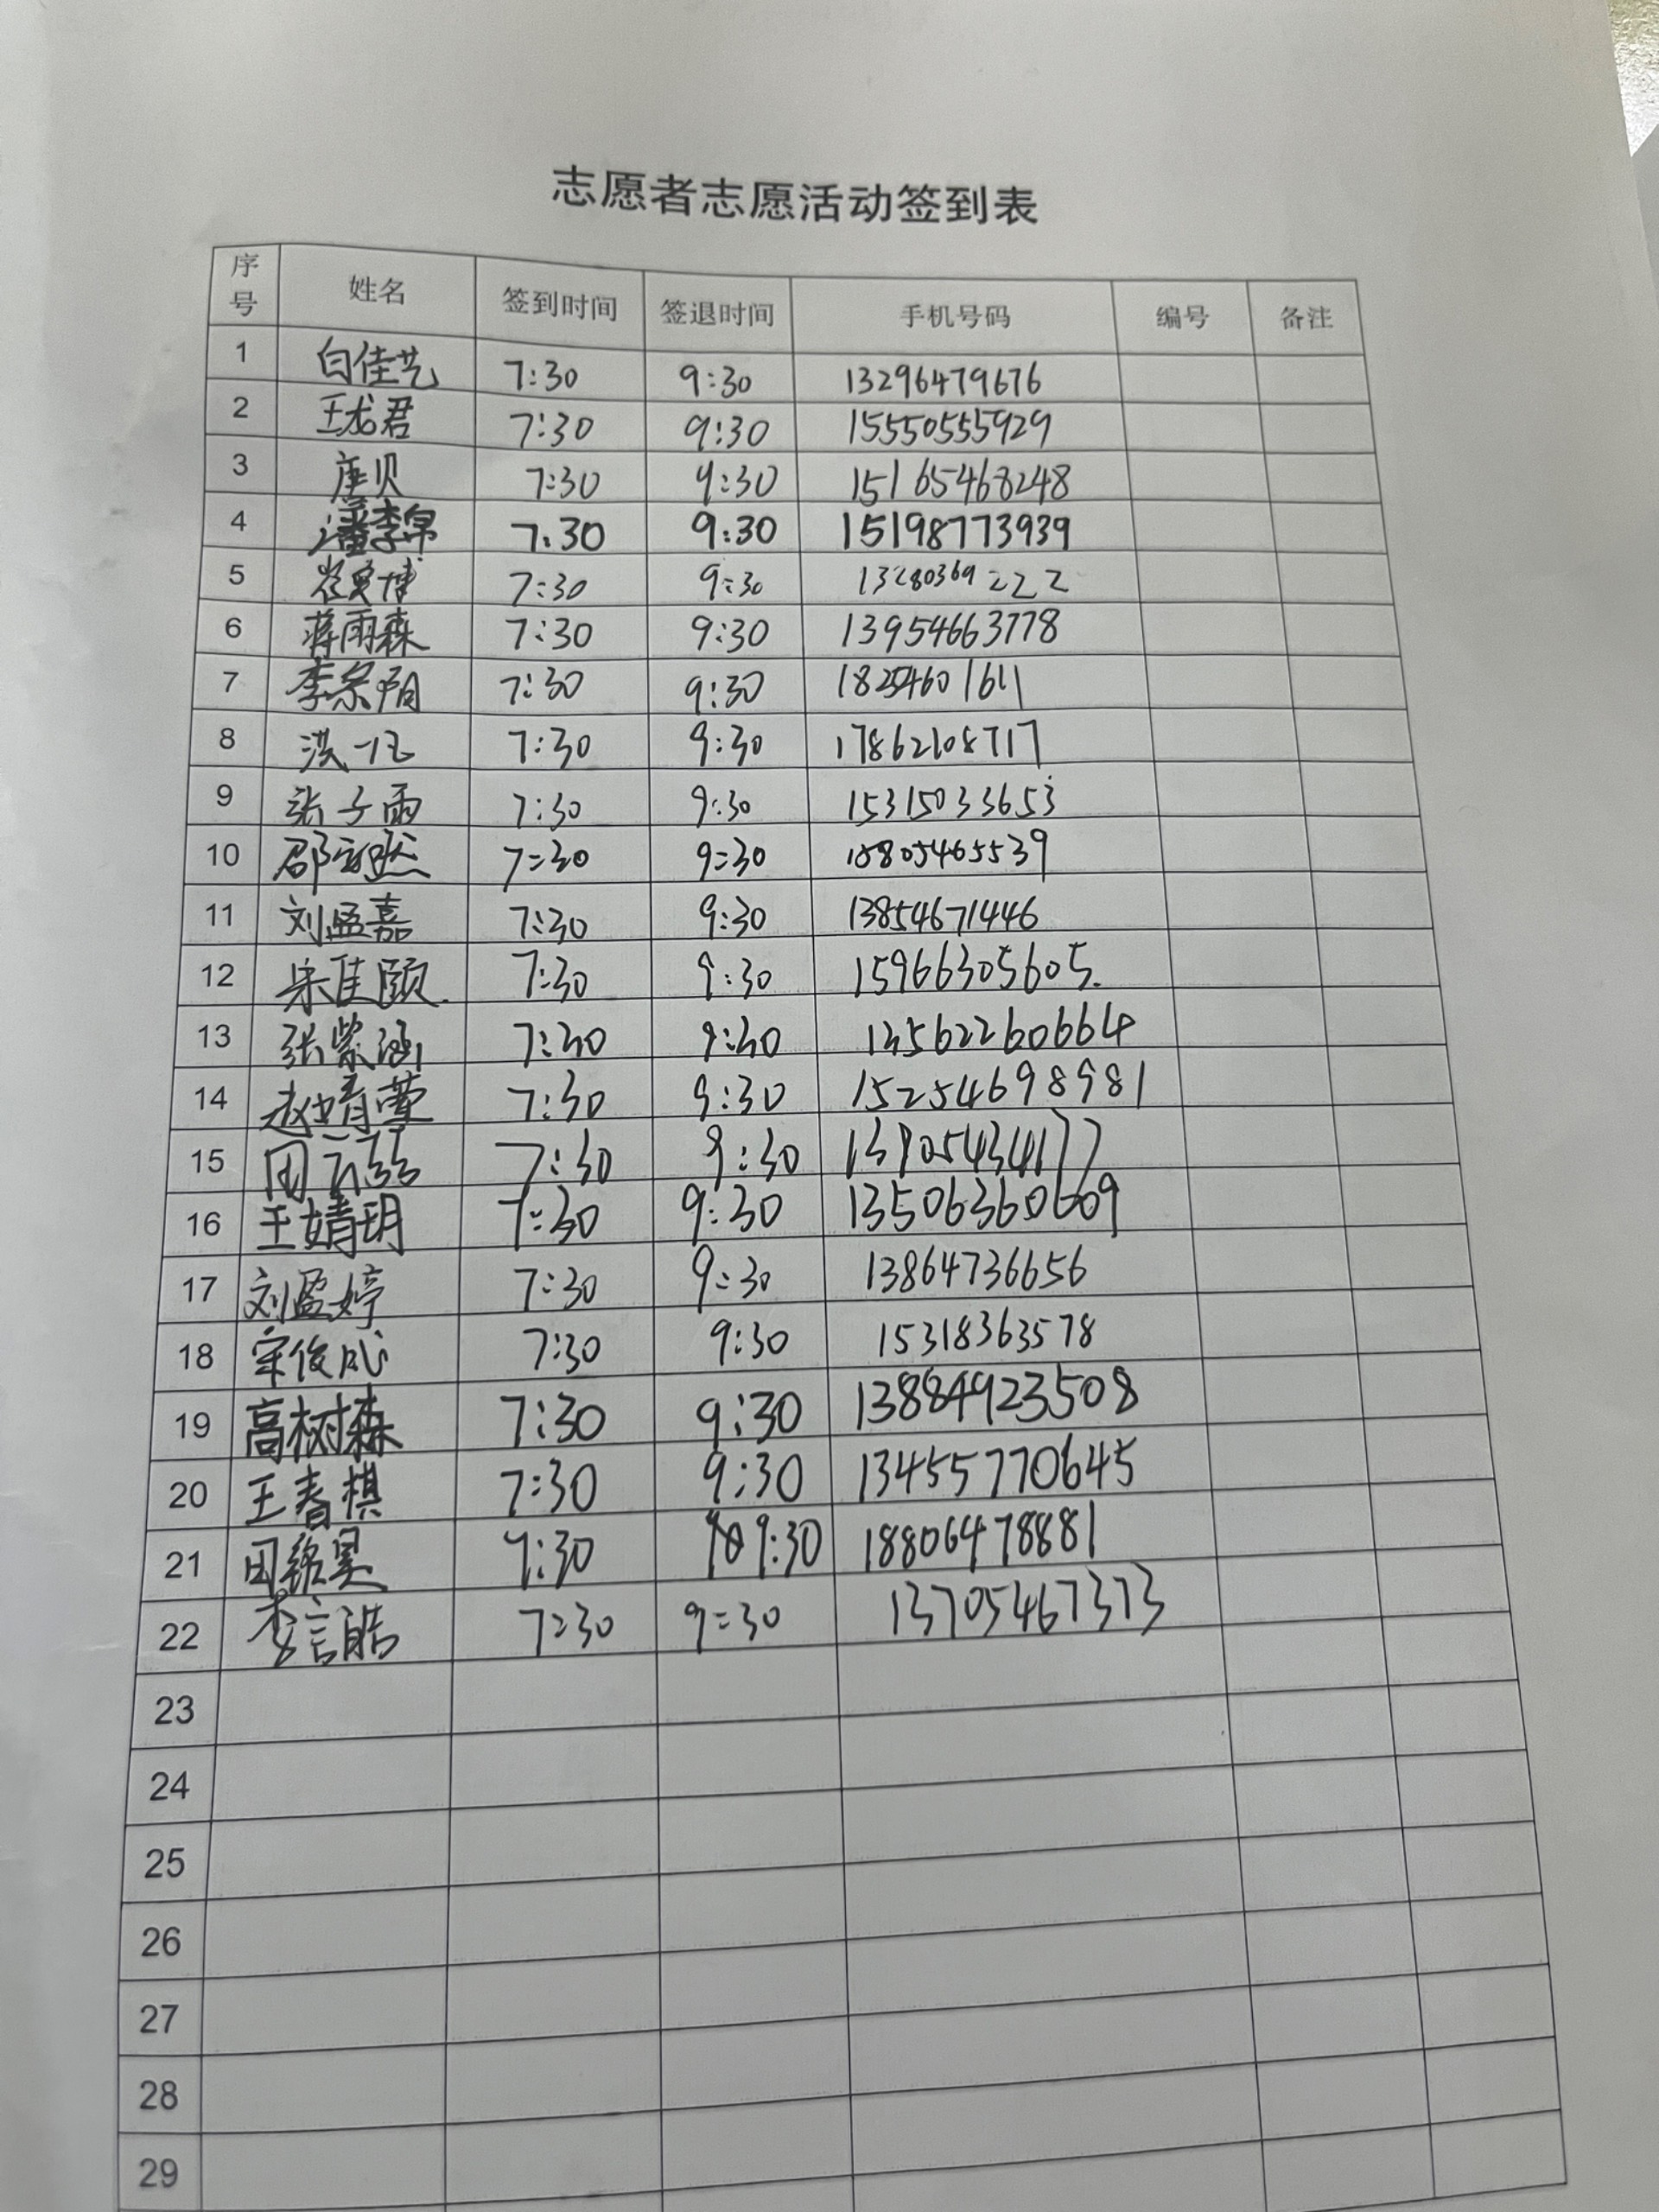 志愿者志愿活动签到表
序号 姓名 签到时间 签退时间 手机号码 编号 备注
1 白佳艺 7:30 9:30 13296479676
2 王龙君 7:30 9:30 15550555929
3 唐贝 7:30 9:30 15165468248
4 潘李帛 7:30 9:30 15198773939
5 7:30 9:30 13280369222
6 蒋雨森 7:30 9:30 13954663778
7 李宗阳 7:30 9:30 18254601611
8 洪一凡 7:30 9:30 17862108717
9 张子雨 7:30 9:30 15315033653
10 邵 然 7:30 9:30 18805465539
11 刘孟嘉 7:30 9:30 13854671446
12 宋佳颐 7:30 9:30 15966305605
13 张紫涵 7:30 9:30 13562260664
14 赵婧萱 7:30 9:30 15254698981
15 7:30 9:30 13905434177
16 王婧玥 7:30 9:30 13506360609
17 刘盈婷 7:30 9:30 13864736656
18 宋俊成 7:30 9:30 15318363578
19 高树森 7:30 9:30 13884923508
20 王春棋 7:30 9:30 13455770645
21 田铭昊 7:30 9:30 18806478881
22 李言皓 7:30 9:30 13705467373
23
24
25
26
27
28
29